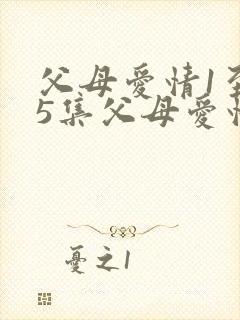 父母爱情1至
5集父母爱情
忧之1